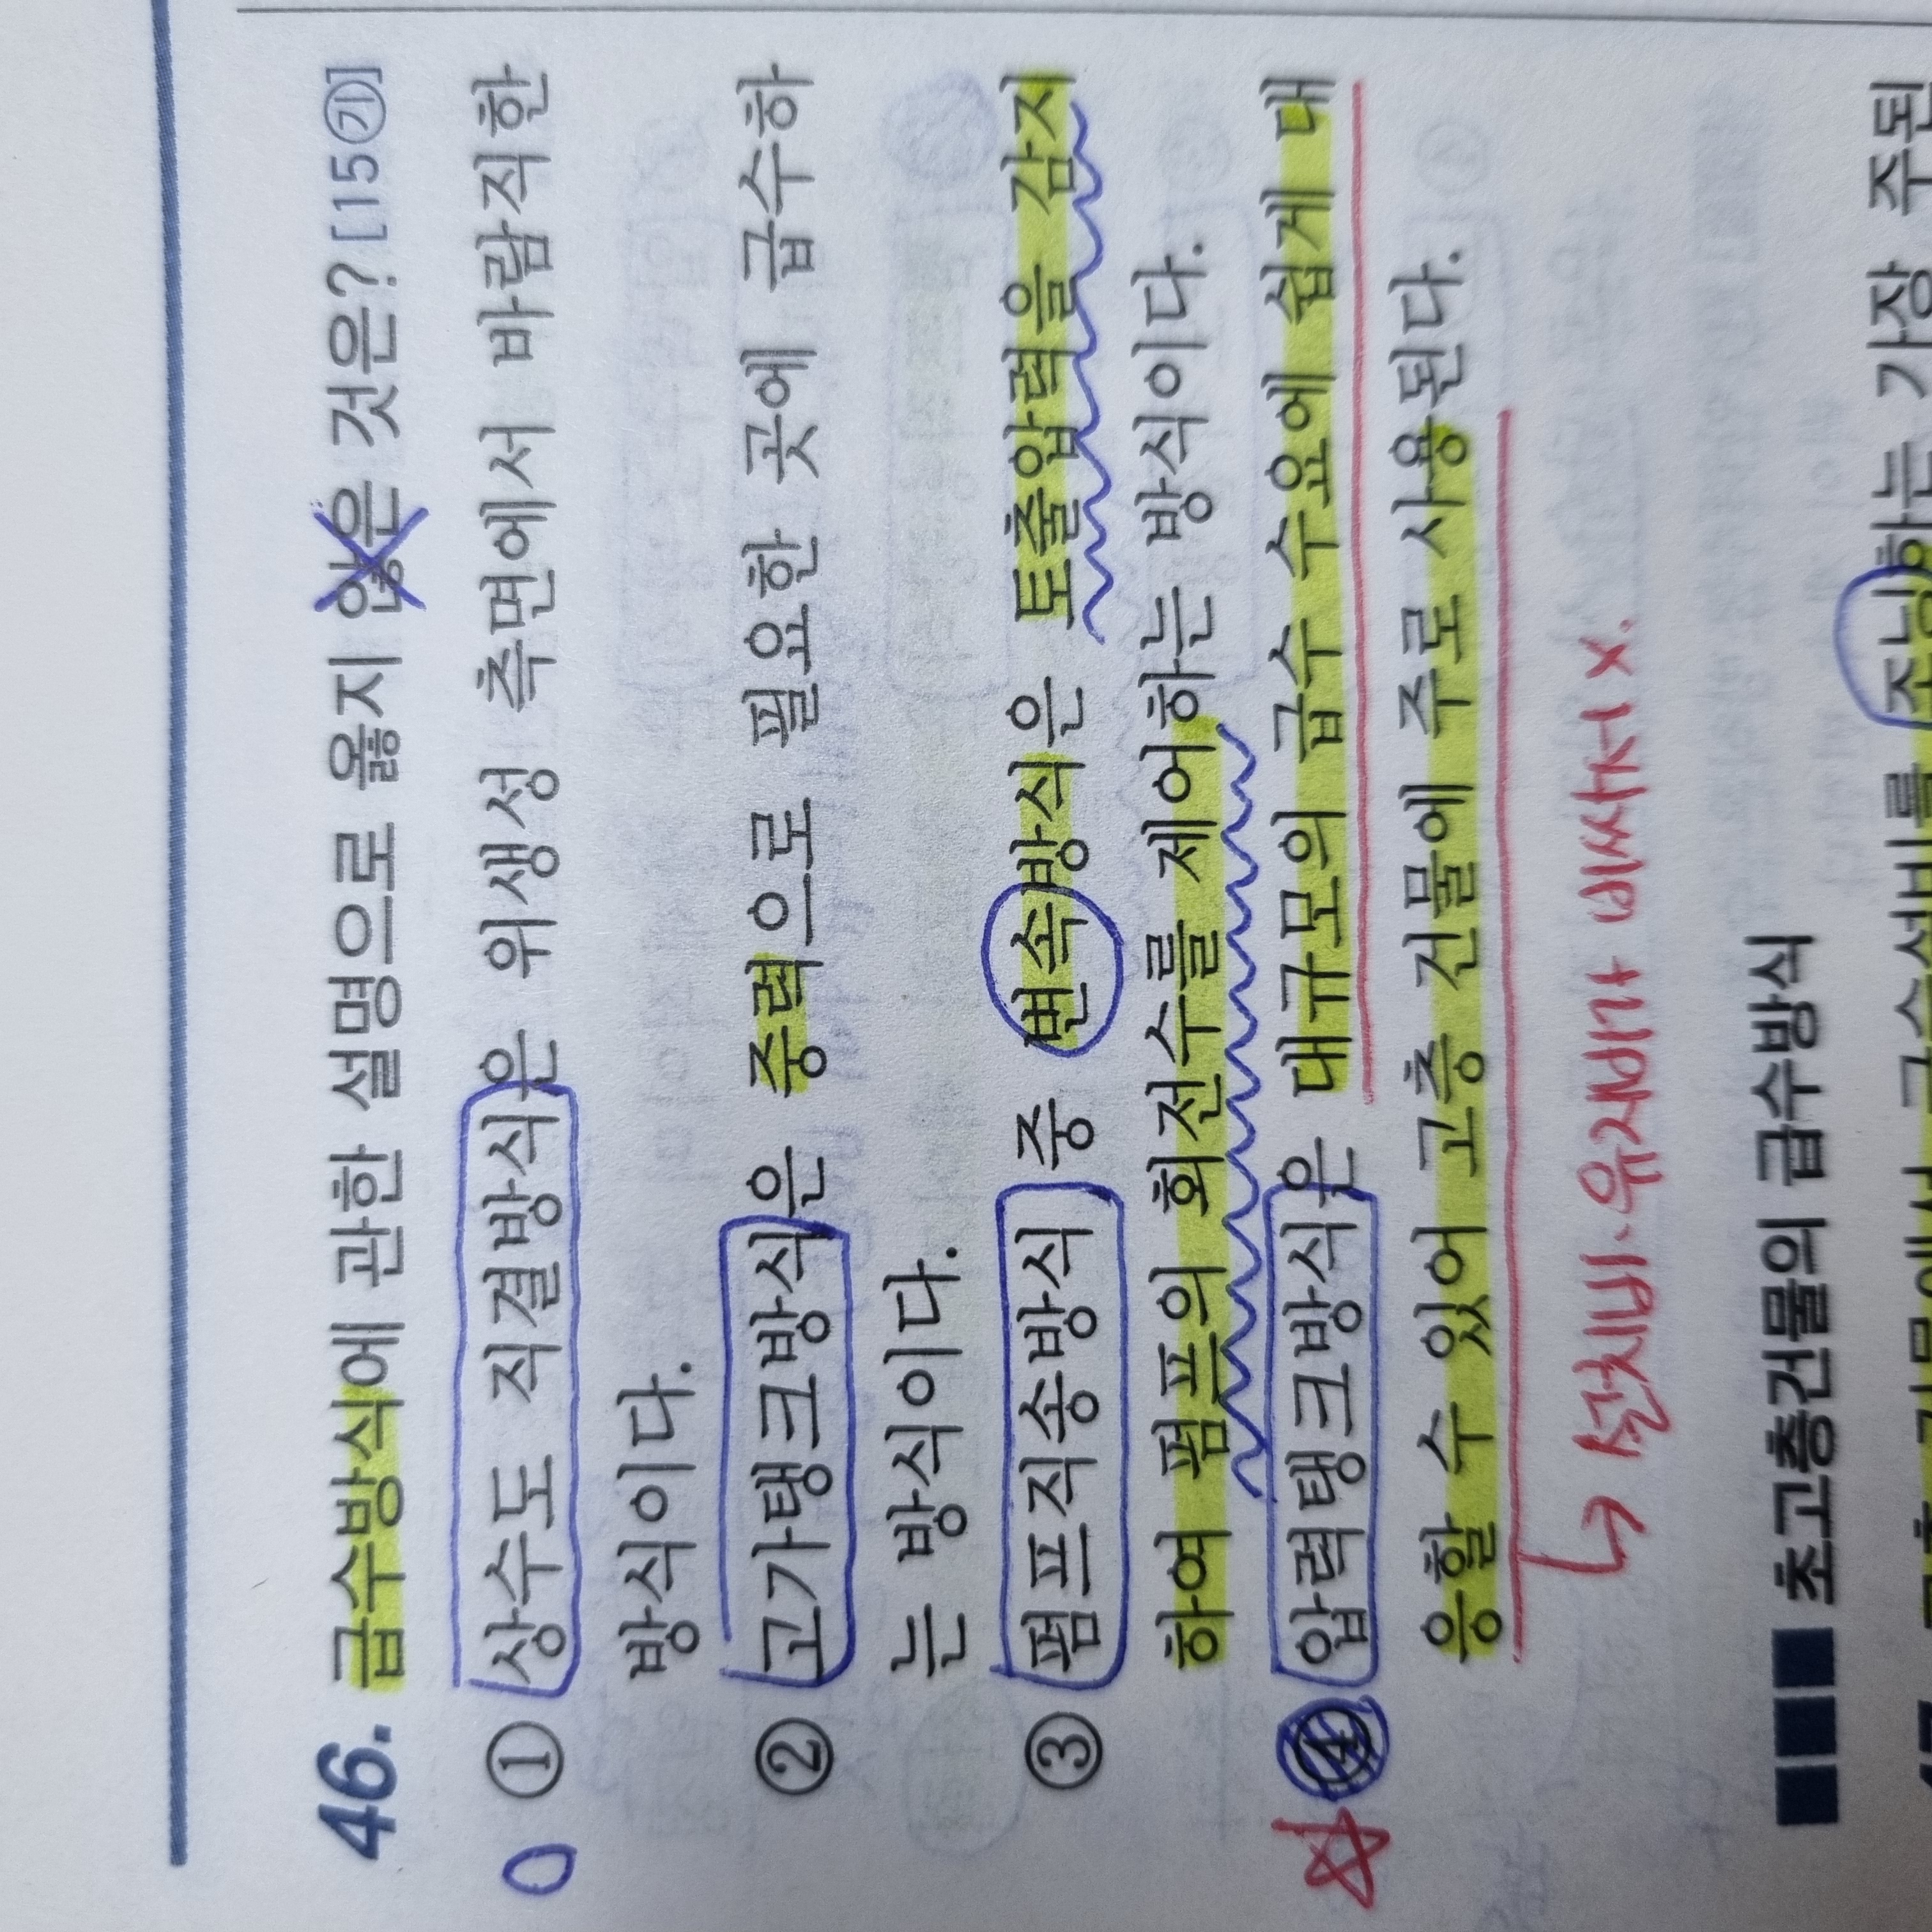 46. 급수방식에 관한 설명으로 옳지 않은 것은? [15㉮]
① 상수도 직결방식은 위생성 측면에서 바람직한
방식이다.
② 고가탱크방식은 중력으로 필요한 곳에 급수하
는 방식이다.
③ 펌프직송방식 중 변속방식은 토출압력을 감지
하여 펌프의 회전수를 제어하는 방식이다.
④ 압력탱크방식은 대규모의 급수 수요에 쉽게 대
응할 수 있어 고층 건물에 주로 사용된다.
↳ 설치비·유지비가 비싸서 x.
■■■ 초고층건물의 급수방식